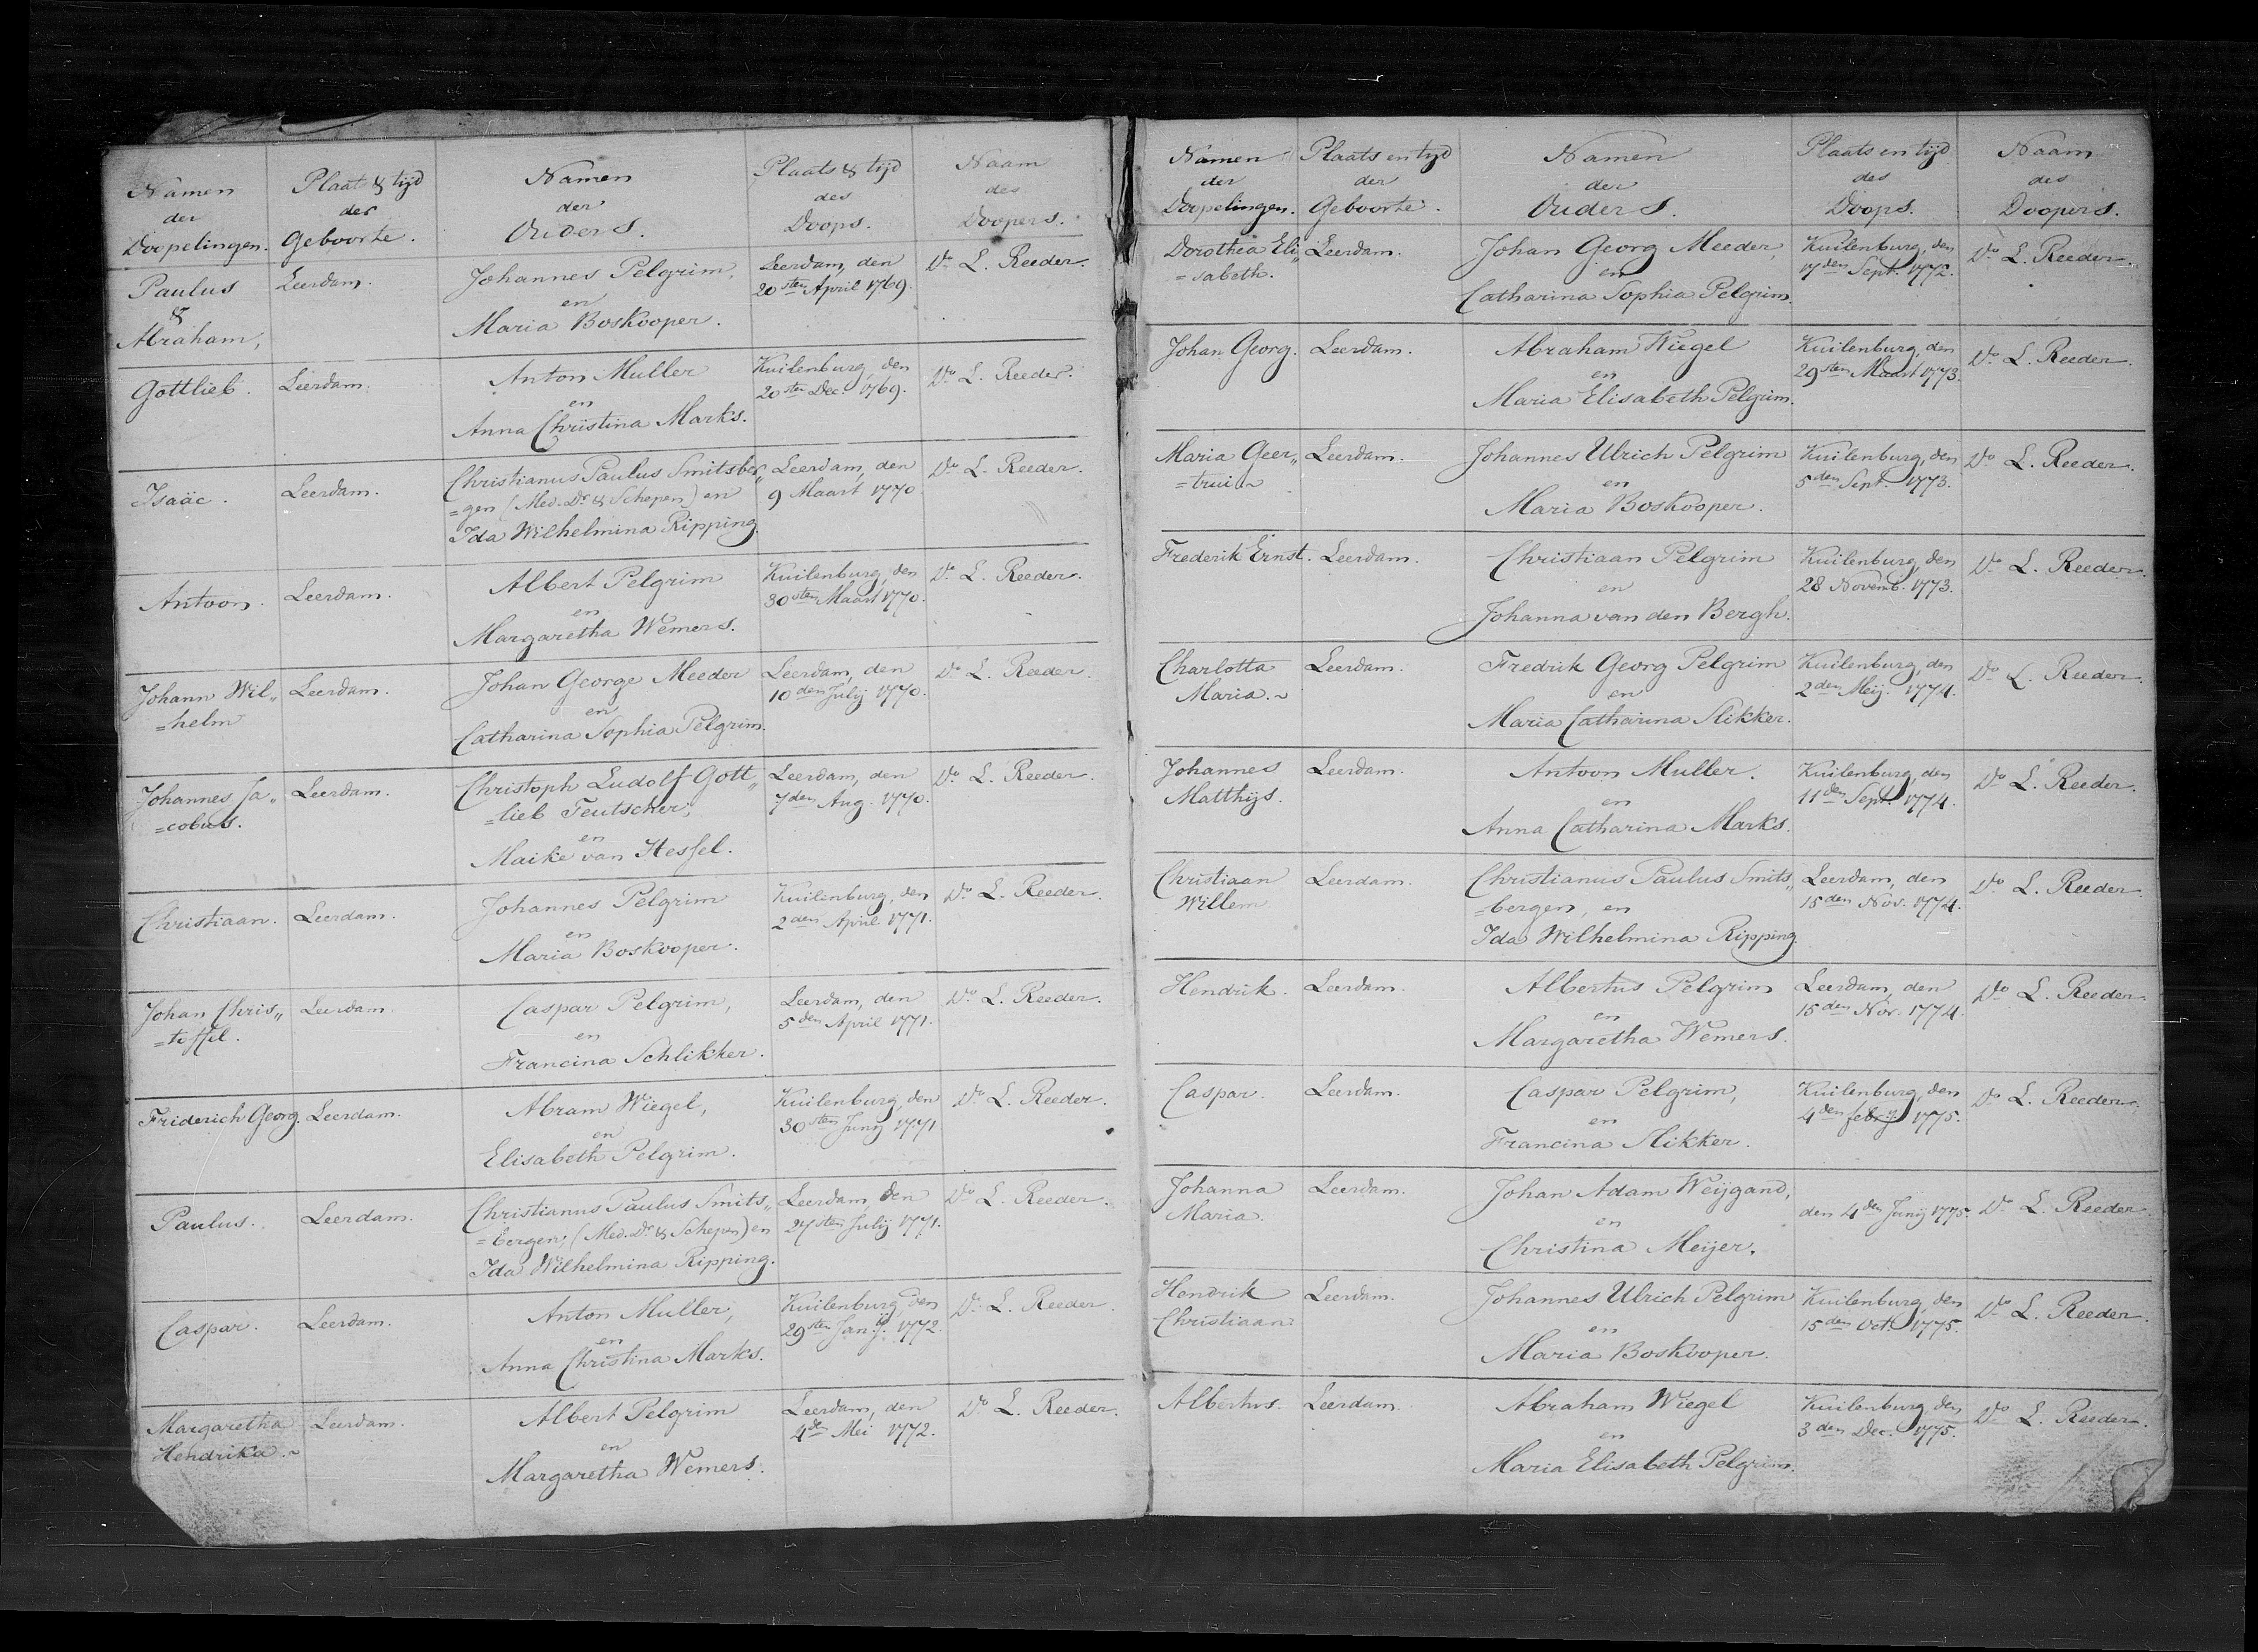 Namen
der
Doopelingen.
Plaats & tijd
der
Geboorte.
Namen
der
Ouders.
Plaats & tijd
des
Doops.
Naam
des
Doopers.
Paulus
&
Abraham,
Leerdam.
Johannes Pelgrim,
en
Maria Boskooper.
Leerdam, den
20sten April 1769.
Do. L. Reeder.
Gottlieb.
Leerdam.
Anton Muller
en
Anna Christina Marks.
Kuilenburg, den
20sten Dec. 1769.
Do. L. Reeder.
Isaäc.
Leerdam.
Christianus Paulus Smitsber„
=gen (Med. Dr. & Schepen) en
Ida Wilhelmina Ripping.
Leerdam, den
9 Maart 1770.
Do. L. Reeder.
Antoon.
Leerdam.
Albert Pelgrim
en
Margaretha Wemers.
Kuilenburg, den
30sten Maart 1770.
Do. L. Reeder.
Johann Wil„
=helm
Leerdam.
Johan George Meeder
en
Catharina Sophia Pelgrim.
Leerdam, den
10den Julij 1770.
Do. L. Reeder.
Johannes Ja„
=cobus.
Leerdam.
Christoph Ludolf Gott„
=lieb Teutscher,
en
Maike van Hessel.
Leerdam, den
7den Aug. 1770.
Do. L. Reeder.
Christiaan.
Leerdam.
Johannes Pelgrim
en
Maria Boskooper.
Kuilenburg, den
2den April 1771.
Do. L. Reeder.
Johan Chris„
=toffel.
Leerdam.
Caspar Pelgrim,
en
Francina Schlikker.
Leerdam, den
5den April 1771.
Do. L. Reeder.
Friderich Georg.
Leerdam.
Abram Wiegel,
en
Elisabeth Pelgrim.
Kuilenburg, den
30sten Junij 1771
Do. L. Reeder.
Paulus.
Leerdam.
Christianus Paulus Smits„
=bergen, (Med. Dr. & Schepen) en
Ida Wilhelmina Ripping.
Leerdam, den
27sten Julij 1771.
Do. L. Reeder.
Caspar.
Leerdam.
Anton Muller,
en
Anna Christina Marks.
Kuilenburg, den
29sten Jan.ij. 1772.
Do. L. Reeder.
Margaretha
Hendrika.~
Leerdam.
Albert Pelgrim
en
Margaretha Wemers.
Leerdam, den
4de Mei 1772.
Do. L. Reeder.
Namen
der
Doopelingen.
Plaats en tyd
der
Geboorte.
Namen
der
Ouders.
Plaats en tijd
des
Doops.
Naam
des
Doopers.
Dorothea Eli„
=sabeth.
Leerdam.
Johan Georg Meeder,
en
Catharina Sophia Pelgrim.
Kuilenburg, den
17den Sept. 1772.
Do. L. Reeder.
Johan Georg.
Leerdam.
Abraham Wiegel
en
Maria Elisabeth Pelgrim.
Kuilenburg, den
29sten Maart 1773.
Do. L. Reeder.
Maria Geer„
=trui~
Leerdam.
Johannes Ulrich Pelgrim
en
Maria Boskooper.
Kuilenburg, den
5den Sept. 1773.
Do. L. Reeder.
Frederik Ernst.
Leerdam.
Christiaan Pelgrim
en
Johanna van den Bergh.
Kuilenburg, den
28 Novemb. 1773.
Do. L. Reeder.
Charlotta
Maria.~
Leerdam.
Fredrik Georg Pelgrim
en
Maria Catharina Slikker.
Kuilenburg, den
2den Meij. 1774.
Do. L. Reeder.
Johannes
Matthijs.
Leerdam.
Antoon Muller.
en
Anna Catharina Marks.
Kuilenburg, den
11den Sept. 1774.
Do. L. Reeder.
Christiaan
Willem
Leerdam.
Christianus Paulus Smits„
=bergen, en
Ida Wilhelmina Ripping.
Leerdam, den
15den Nov. 1774.
Do. L. Reeder.
Hendrik.
Leerdam.
Albertus Pelgrim
en
Margaretha Wemers.
Leerdam, den
15den Nov. 1774.
Do. L. Reeder.
Caspar.
Leerdam.
Caspar Pelgrim,
en
Francina Slikker.
Kuilenburg, den
4den febrij 1775.
Do. L. Reeder.
Johanna
Maria.
Leerdam.
Johan Adam Weijgand,
en
Christina Meijer.
den 4den Junij 1775.
Do. L. Reeder.
Hendrik
Christiaan
Leerdam.
Johannes Ulrich Pelgrim
en
Maria Boskooper.
Kuilenburg, den
15den Oct. 1775.
Do. L. Reeder.
Albertus.
Leerdam.
Abraham Wiegel
en
Maria Elisabeth Pelgrim.
Kuilenburg, den
3den Dec. 1775.
Do. L. Reeder.